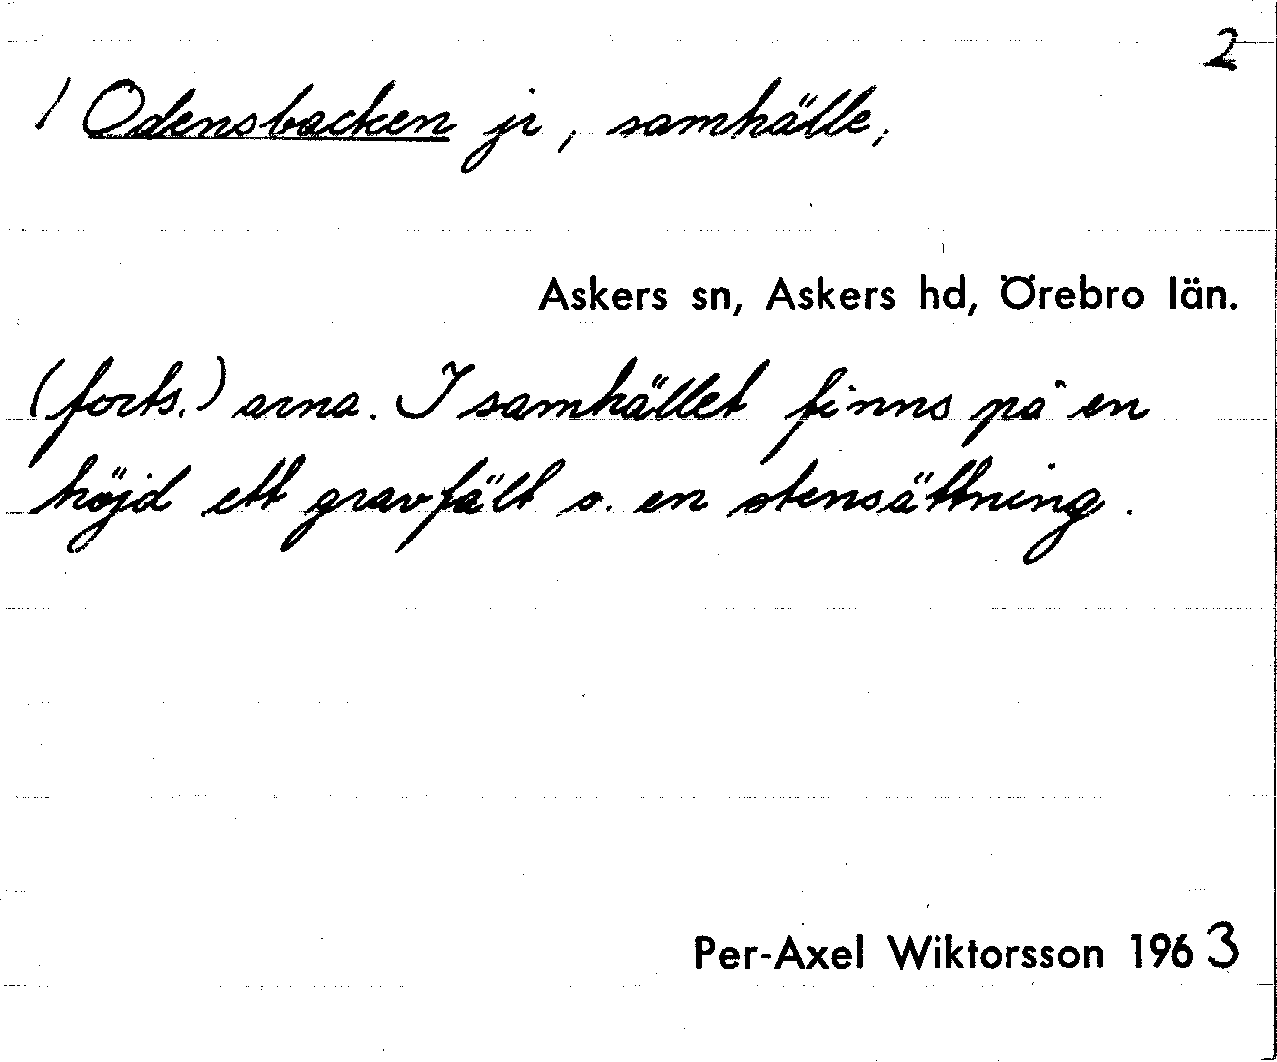 2
/ Odensbacken jr, samhälle,
Askers sn, Askers hd, Örebro län.
(forts.) arna. I samhället finns på en
höjd ett gravfält o. en stensättning.
Per-Axel Wiktorsson 1963